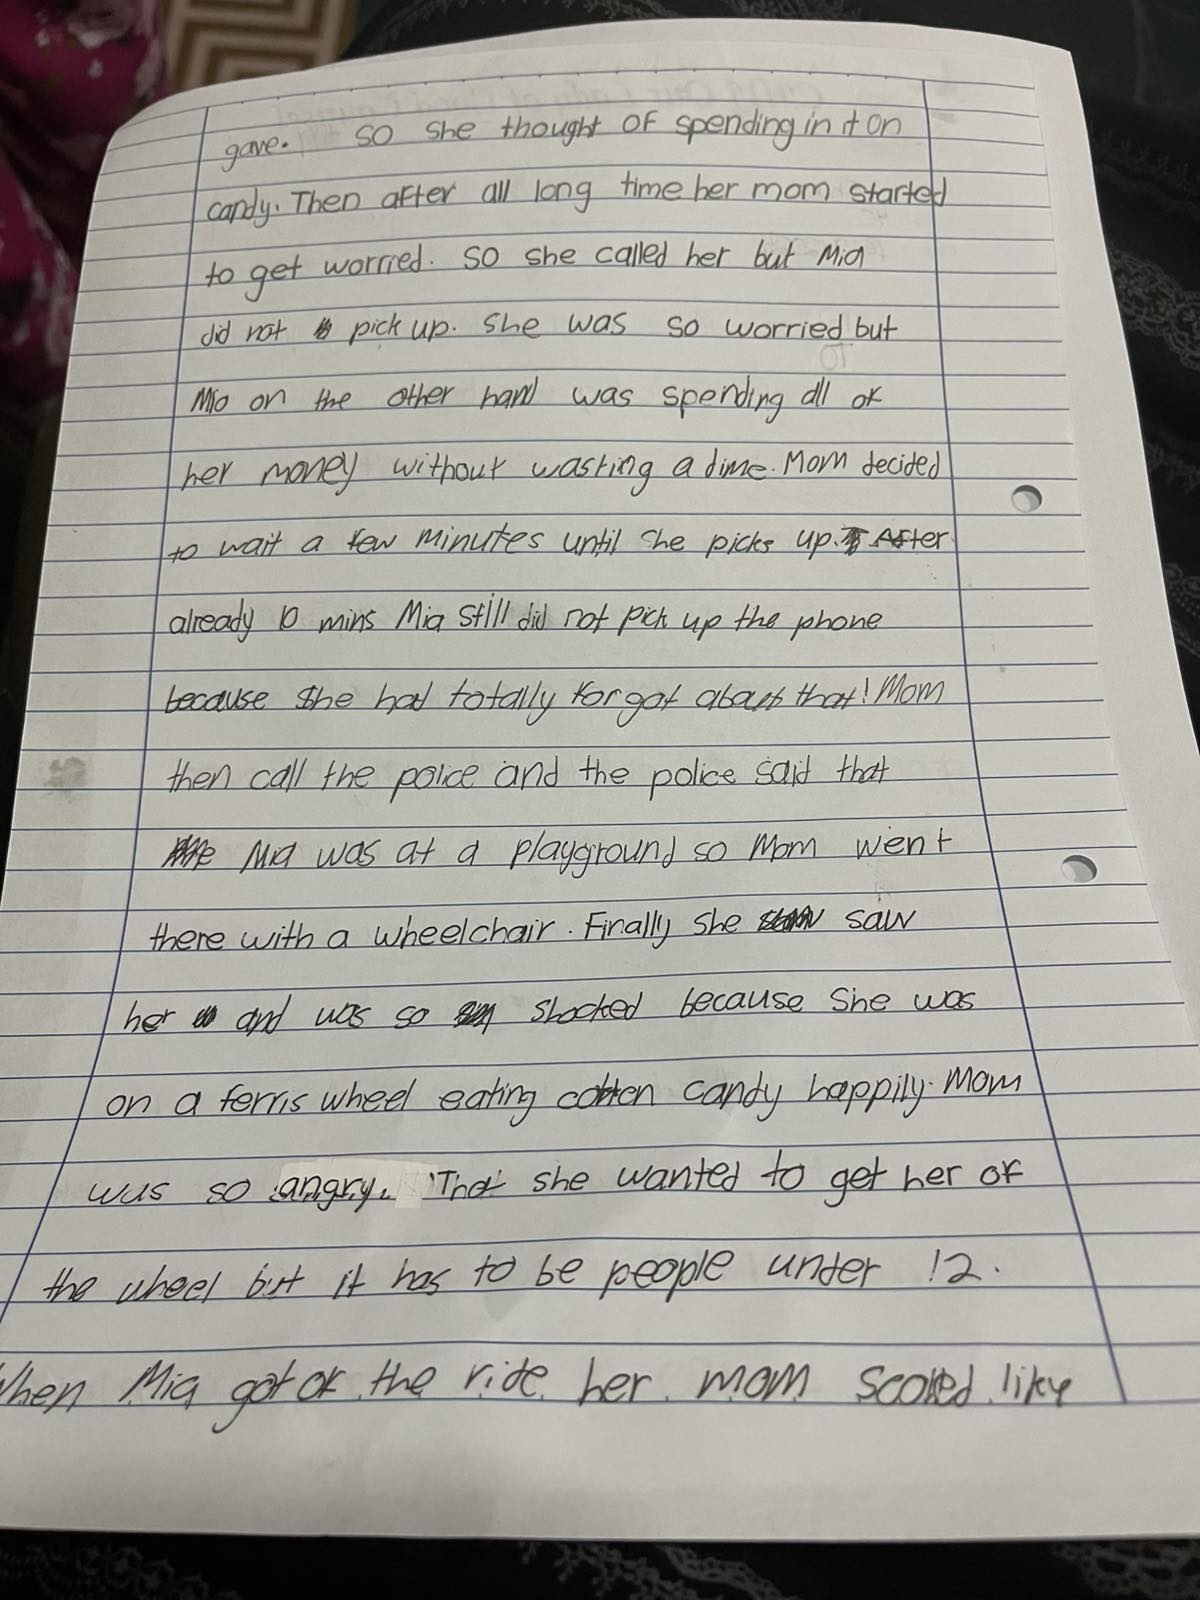 gave. So she thought of spending in it on
candy. Then after all long time her mom started
to get worried. So she called her but Mia
did not pick up. She was so worried but
Mia on the other hand was spending all of
her money without wasting a dime. Mom decided
to wait a few minutes until she picks up. After
already 10 mins Mia still did not pick up the phone
because she had totally forgot about that! Mom
then call the police and the police said that
Mia was at a playground so Mom went
there with a wheelchair. Finally she saw
her and was so shocked because she was
on a ferris wheel eating cotten candy happily. Mom
was so angry. That she wanted to get her of
the wheel but it has to be people under 12.
When Mia got of the ride her mom scolled like